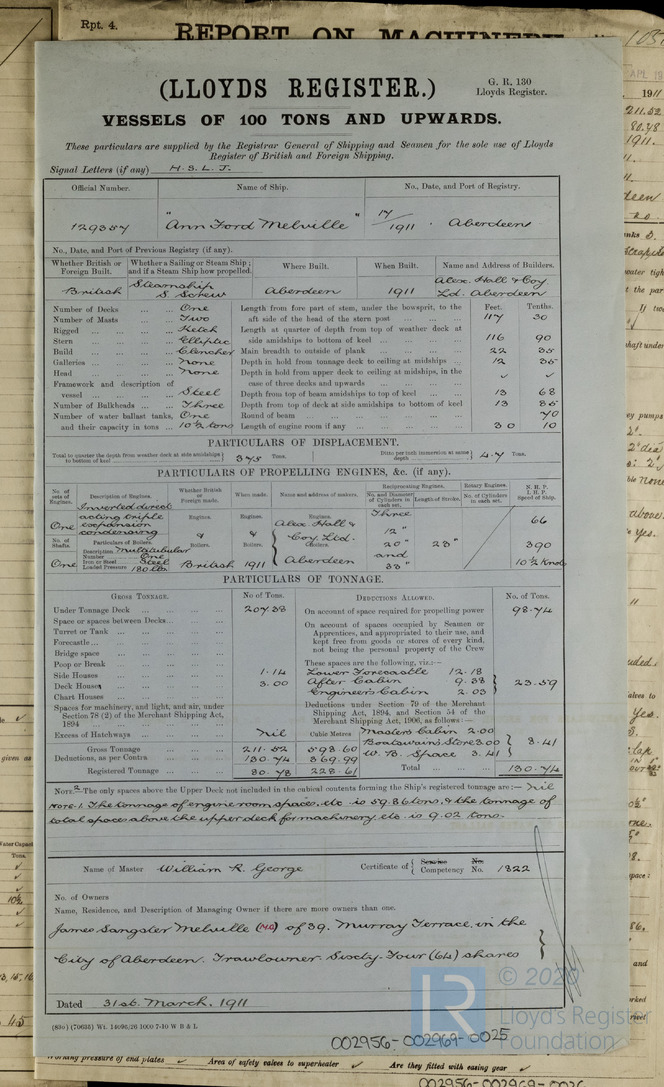 Rpt. 4.
REPORT ON MACHINERY
(LLOYDS REGISTER.)
G. R. 130
Lloyds Register.
VESSELS OF 100 TONS AND UPWARDS.
These particulars are supplied by the Registrar General of Shipping and Seamen for the sole use of Lloyds
Register of British and Foreign Shipping.
Signal Letters (if any) H.S.L.J.
Official Number. Name of Ship. No., Date, and Port of Registry.
129357 "Ann Ford Melville" 17/1911. Aberdeen
No., Date, and Port of Previous Registry (if any).
Whether British or Foreign Built. Whether a Sailing or Steam Ship; and if a Steam Ship how propelled. Where Built. When Built. Name and Address of Builders.
British Steamship S. Screw Aberdeen 1911 Alex. Hall & Coy Ld. Aberdeen
Number of Decks One Length from fore part of stem, under the bowsprit, to the Feet. Tenths.
Number of Masts Two aft side of the head of the stern post 117 30
Rigged Ketch Length at quarter of depth from top of weather deck at
Stern Elliptic side amidships to bottom of keel 116 90
Build Clencher Main breadth to outside of plank 22 55
Galleries None Depth in hold from tonnage deck to ceiling at midships 12 35
Head None Depth in hold from upper deck to ceiling at midships, in the
Framework and description of case of three decks and upwards ✓ ✓
vessel Steel Depth from top of beam amidships to top of keel 13 68
Number of Bulkheads Three Depth from top of deck at side amidships to bottom of keel 13 85
Number of water ballast tanks, One Round of beam 40
and their capacity in tons 10½ tons Length of engine room if any 30 10
PARTICULARS OF DISPLACEMENT.
Total to quarter the depth from weather deck at side amidships to bottom of keel 375 Tons. Ditto per inch immersion at same depth 4.7 Tons.
PARTICULARS OF PROPELLING ENGINES, &c. (if any).
No. of sets of Engines. Description of Engines. Whether British or Foreign made. When made. Name and address of makers. Reciprocating Engines. Rotary Engines. N. H. P.
No. and Diameter of Cylinders in each set. Length of Stroke. No. of Cylinders in each set. I. H. P. Speed of Ship.
One Inverted direct acting triple expansion condensing Engines. Engines. Engines. Alex Hall & Three 12" 66
No. of Shafts. Particulars of Boilers. & Boilers. & Boilers. Coy Ltd. Boilers. 20" 23" 390
Description Multitubular
Number One
One Iron or Steel Steel British 1911 Aberdeen and 33" 10½ Knots
Loaded Pressure 180 lbs.
PARTICULARS OF TONNAGE.
GROSS TONNAGE. No of Tons. DEDUCTIONS ALLOWED. No. of Tons.
Under Tonnage Deck 207.38 On account of space required for propelling power 98.74
Space or spaces between Decks On account of spaces occupied by Seamen or
Turret or Tank Apprentices, and appropriated to their use, and
Forecastle kept free from goods or stores of every kind,
Bridge space not being the personal property of the Crew
Poop or Break These spaces are the following, viz.:—
Side Houses 1.14 Lower Forecastle 12.18
Deck Houses 3.00 After Cabin 9.38 23.59
Chart Houses Engineers Cabin 2.03
Spaces for machinery, and light, and air, under Section 78 (2) of the Merchant Shipping Act, 1894 Deductions under Section 79 of the Merchant Shipping Act, 1894, and Section 54 of the Merchant Shipping Act, 1906, as follows:—
Excess of Hatchways Nil Cubic Metres Masters Cabin 2.00
Gross Tonnage 211.52 598.60 Boatswain's Store 3.00 8.41
Deductions, as per Contra 130.74 369.99 W. B. Space 3.41
Registered Tonnage 80.78 228.61 Total 130.74
NOTE 2.—The only spaces above the Upper Deck not included in the cubical contents forming the Ship's registered tonnage are:— Nil
Note 1. The tonnage of engine room spaces, etc. is 59.86 tons, & the tonnage of
total spaces above the upper deck for machinery etc. is 9.02 tons.
Name of Master William R. George Certificate of { Service No. Competency No. 1822
No. of Owners
Name, Residence, and Description of Managing Owner if there are more owners than one.
James Sangster Melville (MO) of 39. Murray Terrace, in the
City of Aberdeen. Trawlowner. Sixty Four (64) shares
Dated 31st. March, 1911
(830) (70635) Wt. 14095/26 1000 7-10 W B & L
© 2020
LR
Lloyd's Register
Foundation
002956-002969-0025
Working pressure of end plates ✓ Area of safety valves to superheater ✓ Are they fitted with easing gear ✓